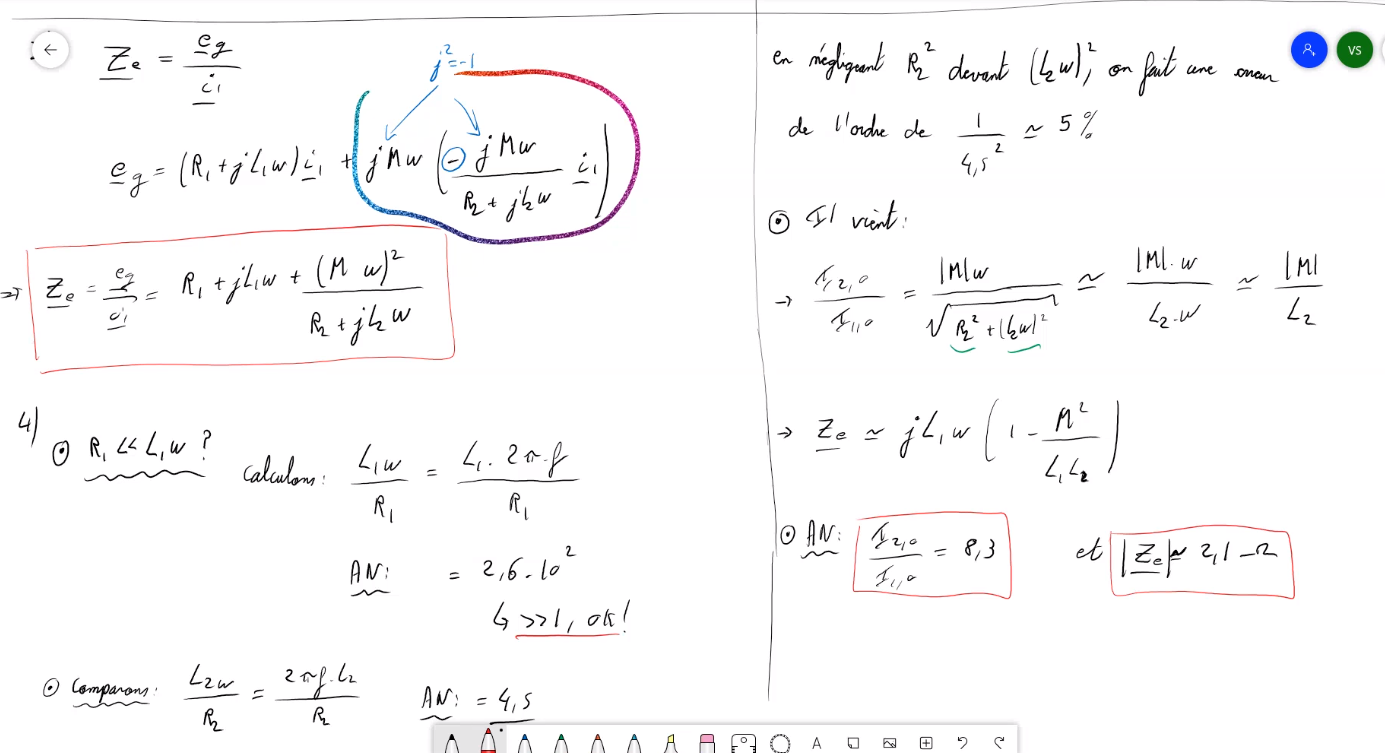 Z_e = e_g / i_1
j² = -1
e_g = (R_1 + jL_1w) i_1 + jMw ( - jMw / (R_2 + jL_2w) i_1 )
=> Z_e = e_g / i_1 = R_1 + jL_1w + (M w)² / (R_2 + jL_2w)
4)
⊙ R_1 << L_1w ?
Calculons : L_1w / R_1 = L_1 . 2π.f / R_1
AN : = 2,6.10²
↳ >>1, ok !
⊙ Comparons : L_2w / R_2 = 2πf.L_2 / R_2 AN : = 4,5
en négligeant R_2² devant (L_2w)², on fait une erreur
de l'ordre de 1 / 4,5² ≃ 5 %
⊙ Il vient :
→ I_2,0 / I_1,0 = |M|w / √(R_2² + (L_2w)²) ≃ |M|.w / L_2.w ≃ |M| / L_2
→ Z_e ≃ jL_1w ( 1 - M² / L_1L_2 )
⊙ AN : I_2,0 / I_1,0 = 8,3 et |Z_e| ≃ 2,1 Ω
VS
A